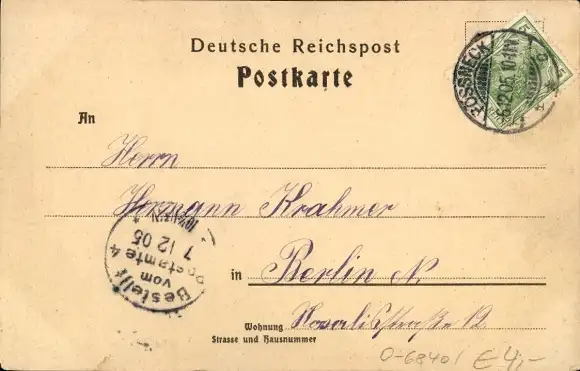 Deutsche Reichspost
Postkarte
PÖSSNECK
6.12.05. 10-11V.
An
Herrn
Hermann Krahmer
in Berlin N.
Wohnung
Strasse und Hausnummer
12
Bestellt
vom
Postamte 4
7 12 05
0-6840/ E 4,-